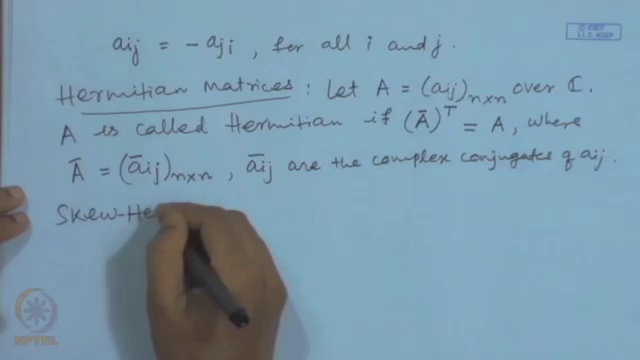 aij = - aji, for all i and j.
© CET
I.I.T. KGP
Hermitian Matrices : Let A = (aij)n×n over ℂ.
A is called Hermitian if (Ā)ᵀ = A, where
Ā = (āij)n×n, āij are the complex conjugates of aij.
Skew-He
NPTEL